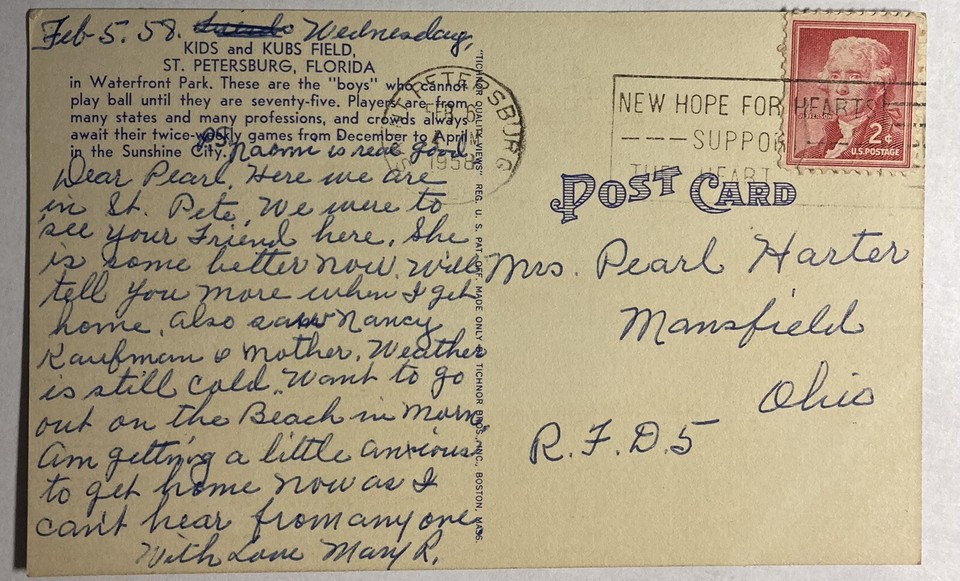 Feb 5. 58. Wednesday,
KIDS and KUBS FIELD,
ST. PETERSBURG, FLORIDA
in Waterfront Park. These are the "boys" who cannot
play ball until they are seventy-five. Players are from
many states and many professions, and crowds always
await their twice-weekly games from December to April
in the Sunshine City.
PS. Naomi is real good.
Dear Pearl. Here we are
in St. Pete. We were to
see your Friend here. She
is some better now. Will
tell you more when I get
home. Also saw Nancy
Kaufman & Mother. Weather
is still cold. Want to go
out on the Beach in Morn.
Am getting a little anxious
to get home now as I
can't hear from any one.
With Love Mary R.
"TICHNOR QUALITY VIEWS" REG. U. S. PAT. OFF. MADE ONLY BY TICHNOR BROS., INC., BOSTON, MASS.
ST. PETERSBURG
FEB 6
PM
1958
NEW HOPE FOR HEARTS
SUPPORT
THE HEART
JEFFERSON
2¢
U.S. POSTAGE
POST CARD
Mrs. Pearl Harter
Mansfield
Ohio
R.F.D. 5